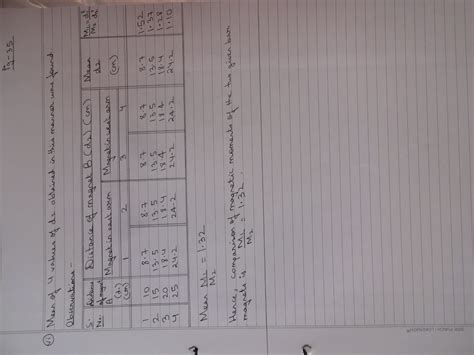 Pg-35
(vi) Mean of 4 values of d2 obtained in this manner was found
Observations -
S. No. Distance of magnet B (d1) (cm) Distance of magnet B (d2) (cm) Mean d2 (cm) M1/M2 = d1³/d2³
Magnet in east arm Magnet in east arm
1 2 3 4
1 10 8.7 8.7 8.7 8.7 8.7 1.52
2 15 13.5 13.5 13.5 13.5 13.5 1.37
3 20 18.4 18.4 18.4 18.4 18.4 1.28
4 25 24.2 24.2 24.2 24.2 24.2 1.10
Mean M1/M2 = 1.32
Hence, comparison of magnetic moments of the two given bar
magnets is M1/M2 = 1.32.